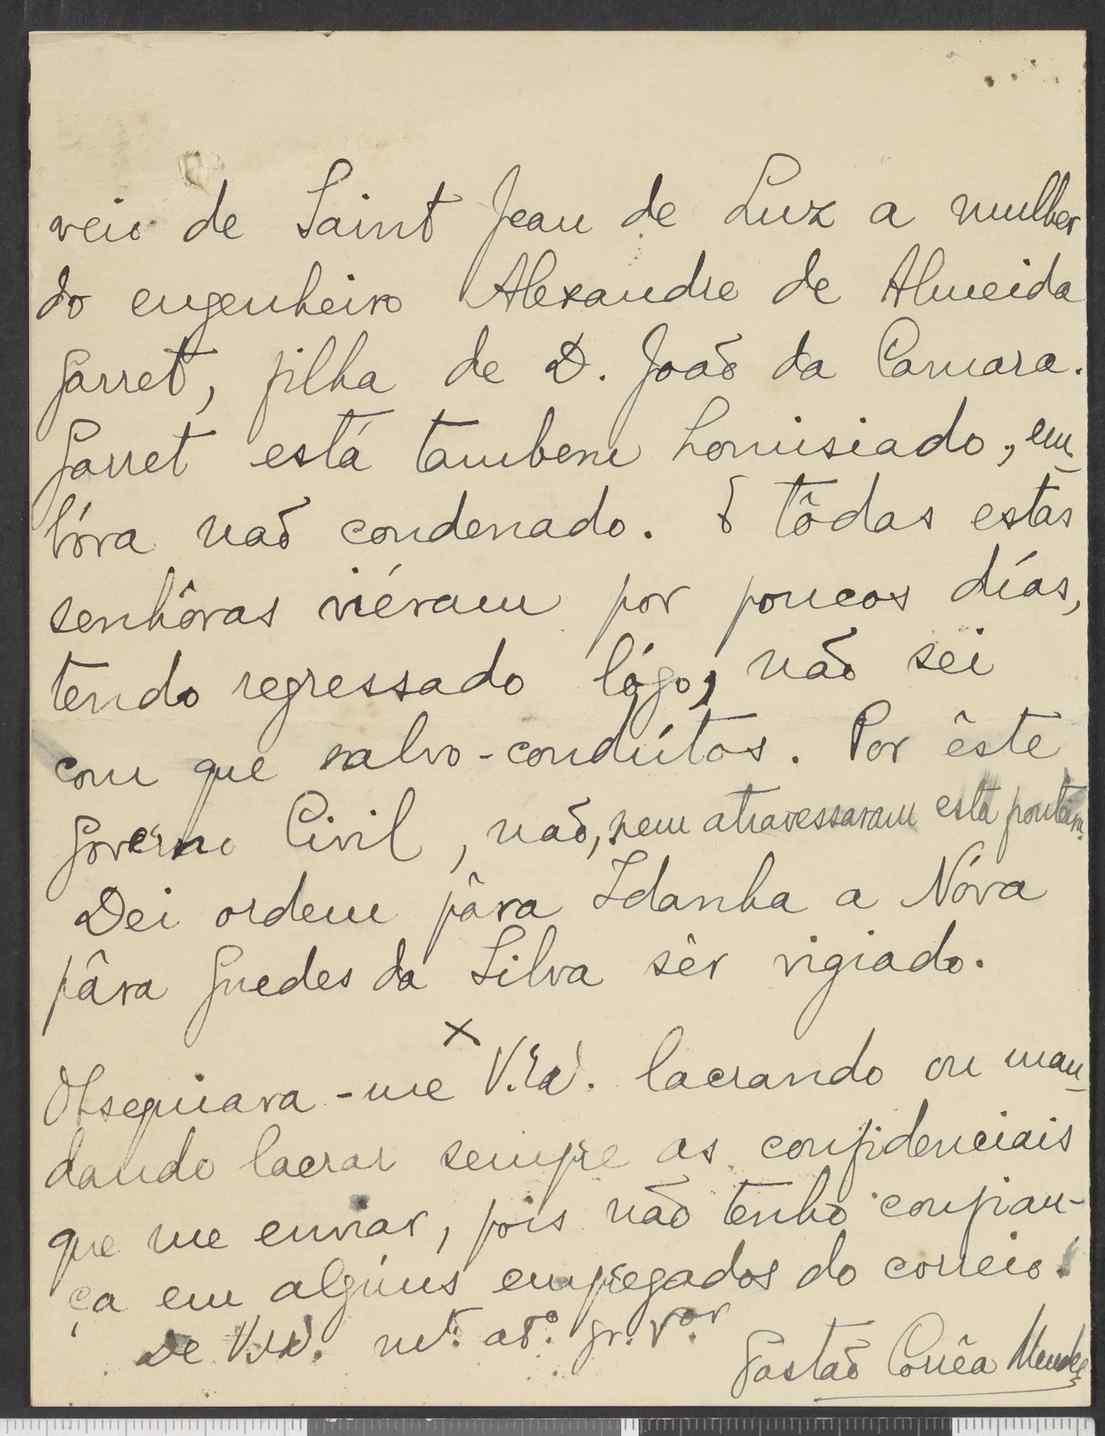 veio de Saint Jean de Luz a mulher
do engenheiro Alexandre de Almeida
Garret, filha de D. João da Camara.
Garret está tambem homisiado, em-
bóra não condenado. E tôdas estas
senhôras viéram por poucos días,
tendo regressado lógo, não sei
com que salvo-condútos. Por êste
Governo Civil, não, nem atravessaram esta
Dei ordem pâra Idanha a Nóva
pâra Guedes da Silva sêr vigiado.
x
Obsequiava-me V. Exª. lacrando ou man-
dando lacrar sempre as confidenciais
que me enviar, pois não tenho confian-
ça em algúns empregados do correio!
De V. Exª. mtº. atº.
Gastão Corrêa Mendes